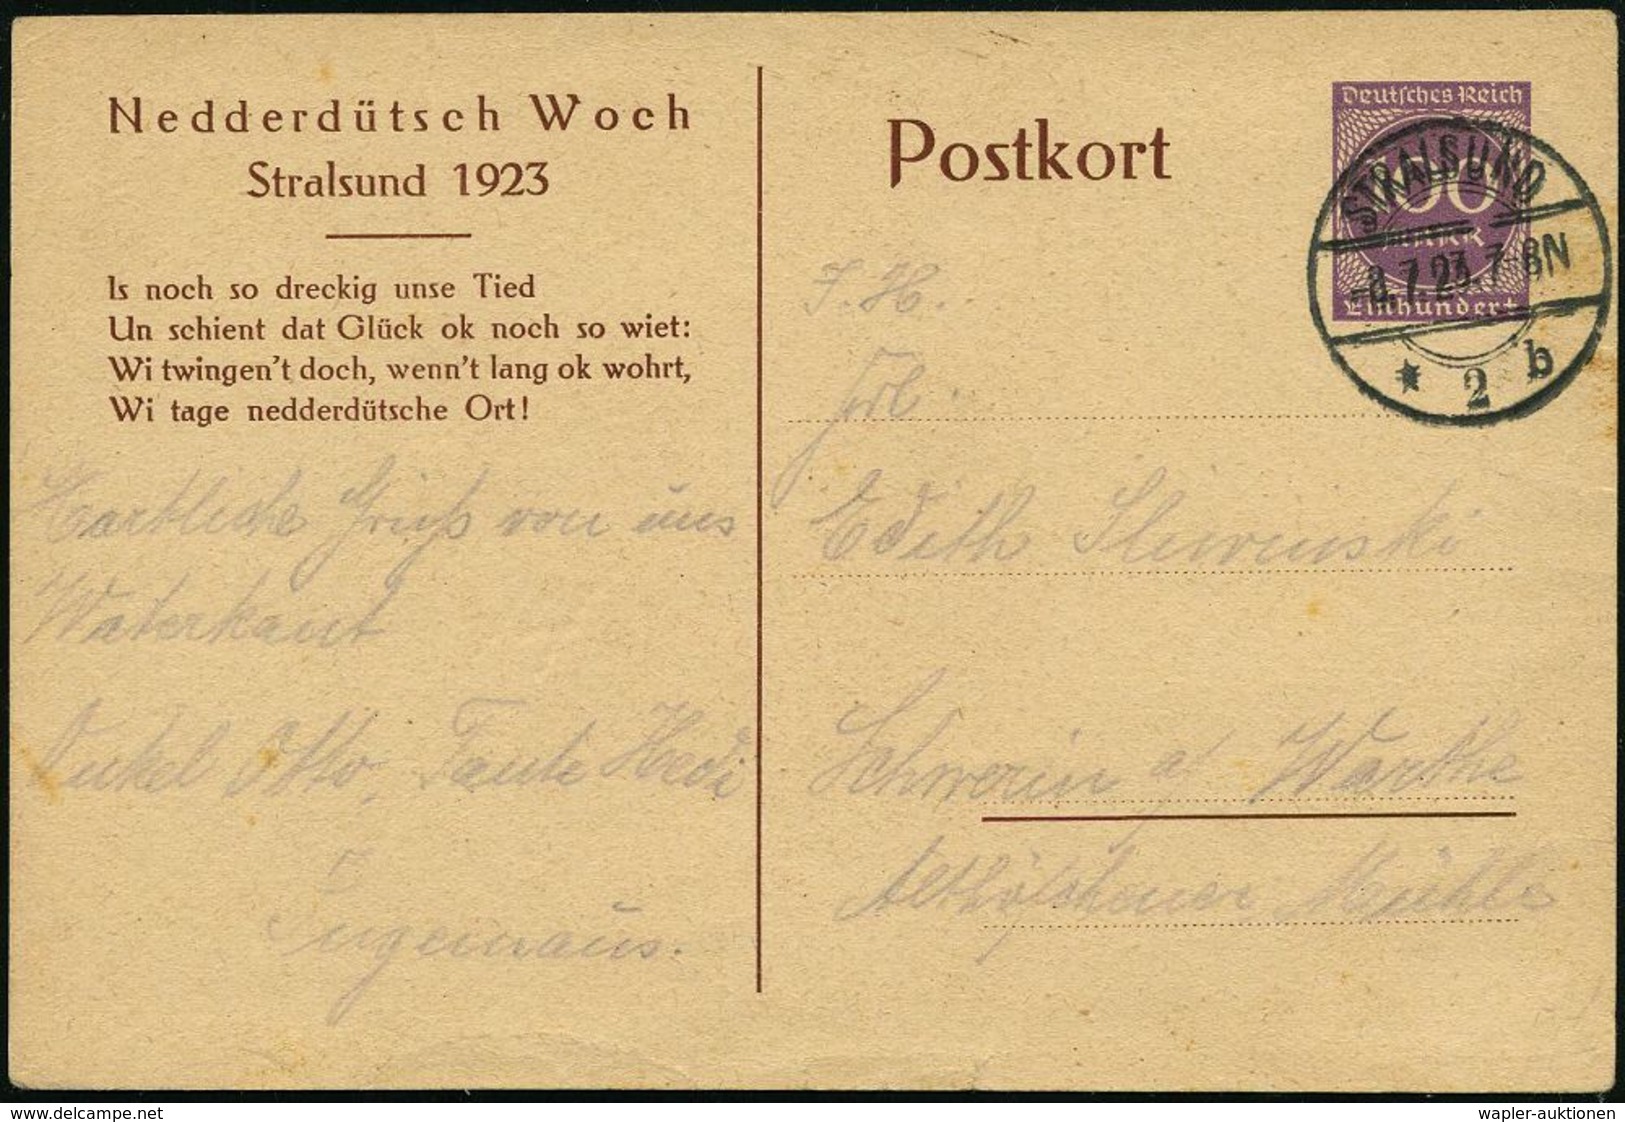 Nedderdütsch Woch
Stralsund 1923
Is noch so dreckig unse Tied
Un schient dat Glück ok noch so wiet:
Wi twingen't doch, wenn't lang ok wohrt,
Wi tage nedderdütsche Ort!
Postkort
Deutsches Reich
100
MARK
Einhundert
STRALSUND
-8.7.23.7-8N
* 2 b
Haartliche Grüß von uns
Waterkant
Onkel Otto, Tante Hedi
J. H.
Frl.
Edith
Schwerin a/ Warthe
Mühle
www.delcampe.net
wapler-auktionen